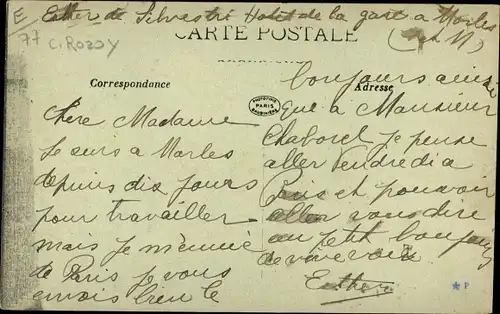 E Esther de Silvestri Hotel de la gare a Marles
77 C. ROZOY
CARTE POSTALE
Correspondance
Adresse
PARIS
chere Madame
Je suis a Marles
depuis dix jours
pour travailler
mais je m'ennuie
de Paris je vous
envois bien le
bonjours ainsi
que à Monsieur
Chaborel Je pense
aller Vendredi a
Paris et pouvoir
aller vous dire
un petit bonjour
de vive voix
Esther
P